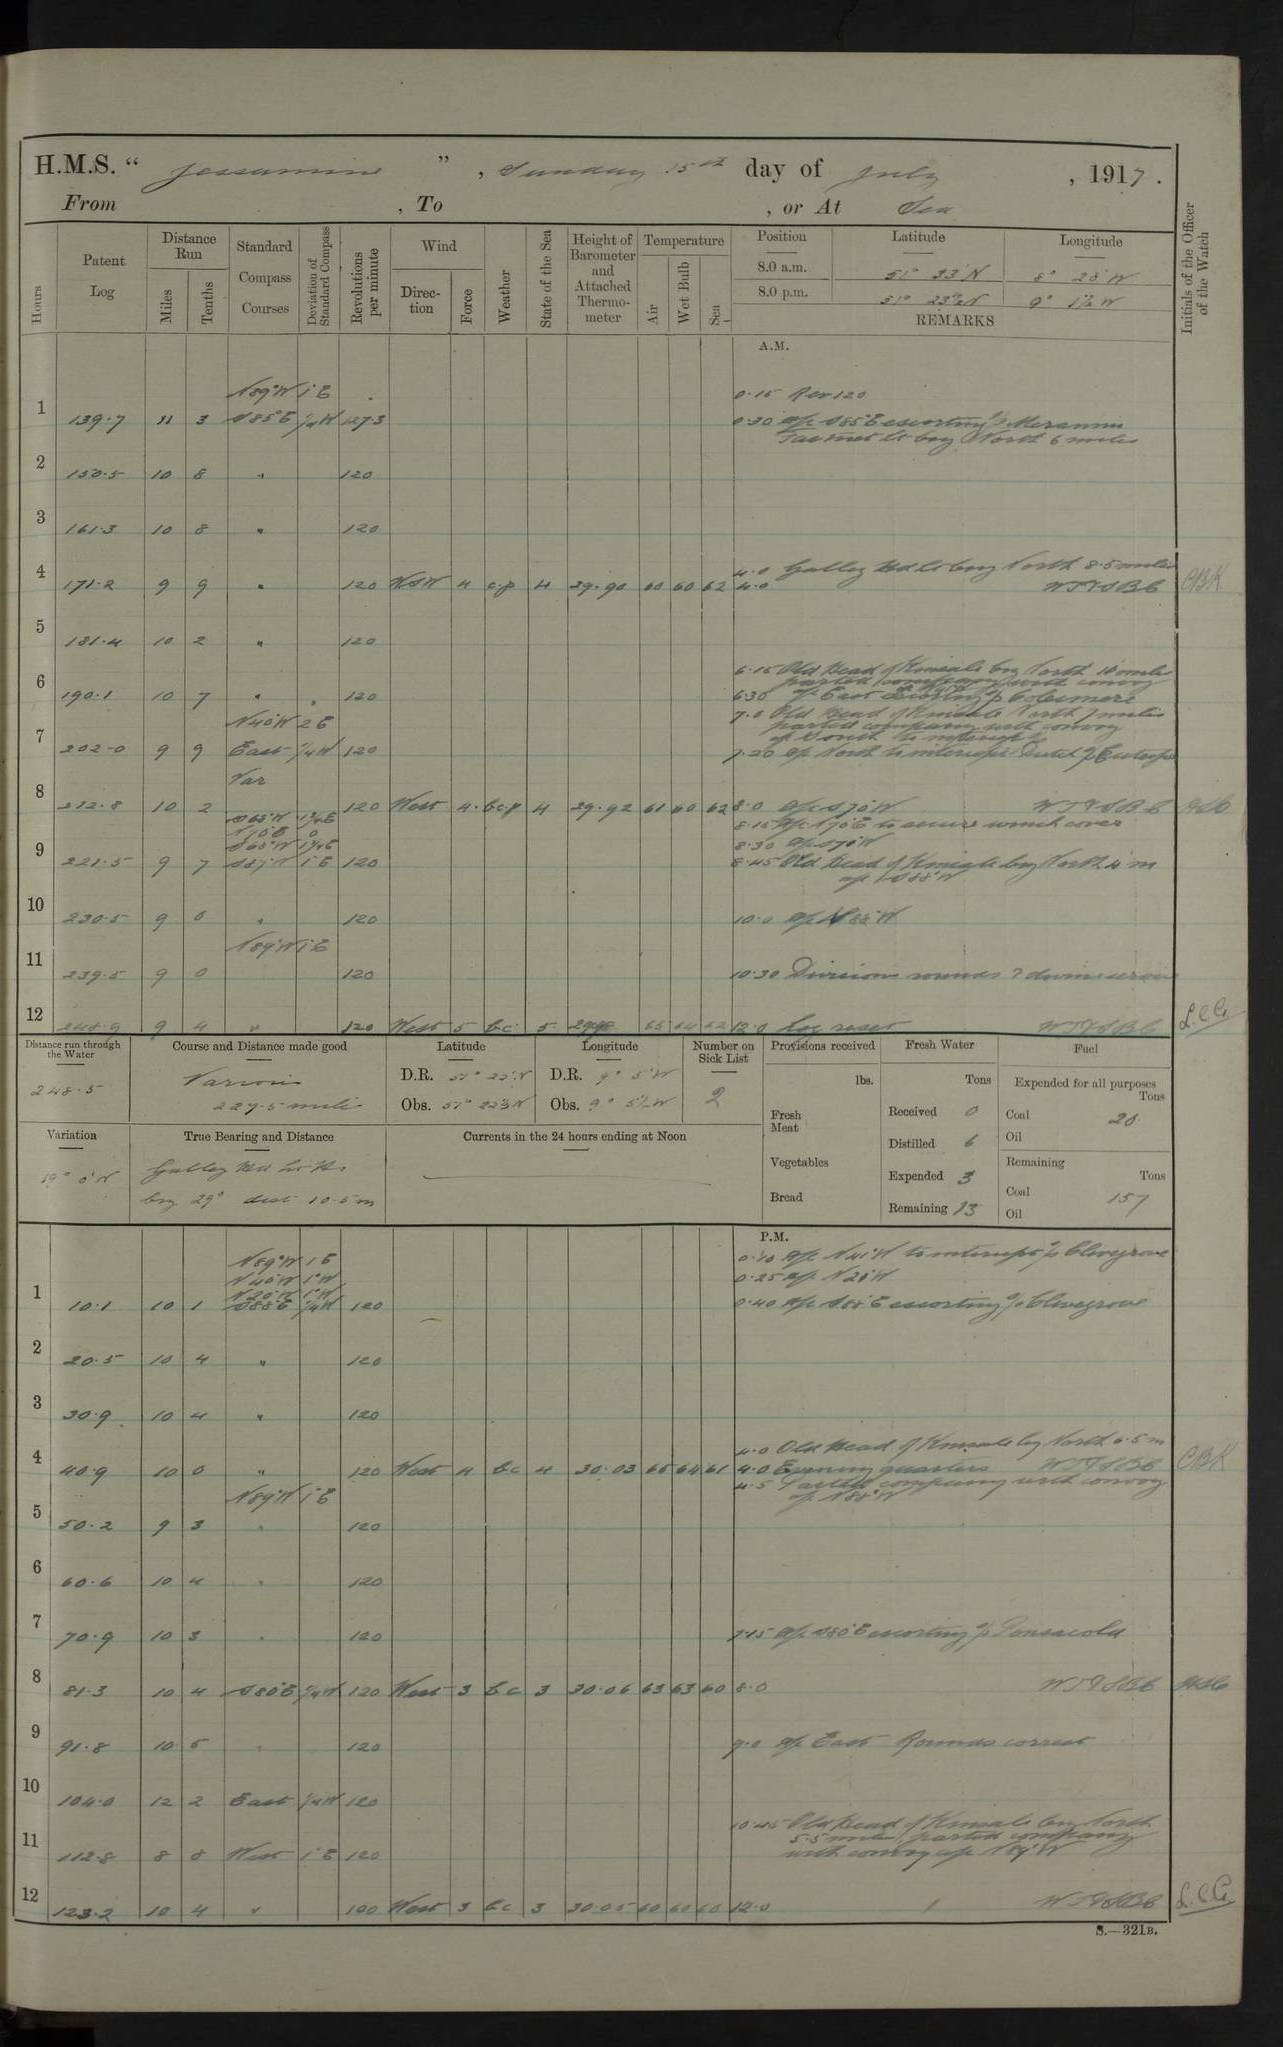 H.M.S. " Jessamine ", Sunday 15th day of July, 1917.
From , To , or At Sea
Hours
Patent Log
Distance Run
Miles
Tenths
Standard Compass Courses
Deviation of Standard Compass
Revolutions per minute
Wind
Direction
Force
Weather
State of the Sea
Height of Barometer and Attached Thermometer
Temperature
Air
Wet Bulb
Sea
Position Latitude Longitude
8.0 a.m. 51° 33' N 8° 28' W
8.0 p.m. 51° 23½ N 9° 1½ W
REMARKS
Initials of the Officer of the Watch
A.M.
N89°W 1°E 0.15 Rev 120
1 139.7 11 3 S85°E ¼W 127.3 0.30 a/c S85°E escorting
lt brg North 6 miles
2 150.5 10 8 " 120
3 161.3 10 8 " 120
4.0 Galley Hd lt brg North 8.5 miles
4 171.2 9 9 " 120 WSW 4 c.p 4 29.90 60 60 62 4.0 CBK
5 181.4 10 2 " 120
6.15 Old Head of Kinsale brg North 10 miles
parted company with convoy
6 190.1 10 7 " 120 6.30 a/c East
N40°W 2E 7.0 Old Head of Kinsale North 7 miles
parted company with convoy
a/c South to intercept
7 202.0 9 9 East ¼W 120 7.20 a/c North to intercept Dutch
Var
8 212.8 10 2 120 West 4 bcp 4 29.92 61 60 62 8.0 a/c S70°W
S65°W 1¾E 8.15 a/c N70°E to secure winch cover
N70E 0
S65°W 1¾E 8.30 a/c S70°W
9 221.5 9 7 S87°W 1°E 120 8.45 Old Head of Kinsale brg North 4 m
a/c S88°W
10 230.5 9 0 " 120 10.0 a/c N88°W
N89°W 1°E
11 239.5 9 0 120 10.30 Divisions rounds & divine service
12 248.9 9 4 " 120 West 5 bc 5 65 64 62 12.0 Log reset L.C.G.
Distance run through the Water
248.5
Course and Distance made good
Various
227.5 miles
Latitude
D.R. 51° 23' N
Obs. 51° 22½ N
Longitude
D.R. 9° 5' W
Obs. 9° 5½ W
Number on Sick List
2
Provisions received
lbs.
Fresh Meat
Vegetables
Bread
Fresh Water
Tons
Received 0
Distilled 6
Expended 3
Remaining 13
Fuel
Expended for all purposes
Tons
Coal 20
Oil
Remaining
Tons
Coal 157
Oil
Variation
19° 0' W
True Bearing and Distance
Galley Hd Lt Ho
brg 29° dist 10.5 m
Currents in the 24 hours ending at Noon
P.M.
N89°W 1E 0.10 a/c N41°W to intercept s/s Clivegrove
N40°W 1°W 0.25 a/c N20°W
N20°W 1°W
1 10.1 10 1 S88°E ¼W 120 0.40 a/c S88°E escorting s/s Clivegrove
2 20.5 10 4 " 120
3 30.9 10 4 " 120
4.0 Old Head of Kinsale brg North 6.5 m
4 40.9 10 0 " 120 West 4 bc 4 30.03 65 64 61 4.0 Evening quarters CBK
N89°W 1°E 4.5 Parted company with convoy
a/c N88°W
5 50.2 9 3 " 120
6 60.6 10 4 " 120
7 70.9 10 3 " 120 7.15 a/c S80°E escorting s/s Pensacola
8 81.3 10 4 S80°E ¼W 120 West 3 bc 3 30.06 63 63 60 8.0
9 91.8 10 5 " 120 9.0 a/c East Rounds correct
10 104.0 12 2 East ¼W 120
10.45 Old Head of Kinsale brg North
5.5 miles, parted company
11 112.8 8 8 West 1°E 120 with convoy a/c N89°W
12 123.2 10 4 " 100 West 3 bc 3 30.05 60 60 60 12.0 L.C.G.
S.—321B.